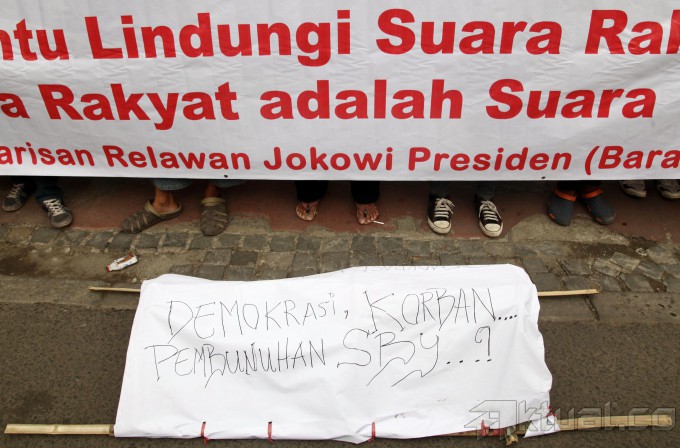 ntu Lindungi Suara Rak
a Rakyat adalah Suara
arisan Relawan Jokowi Presiden (Bara
DEMOKRASI, KORBAN....
PEMBUNUHAN SBY..?
aktual.co